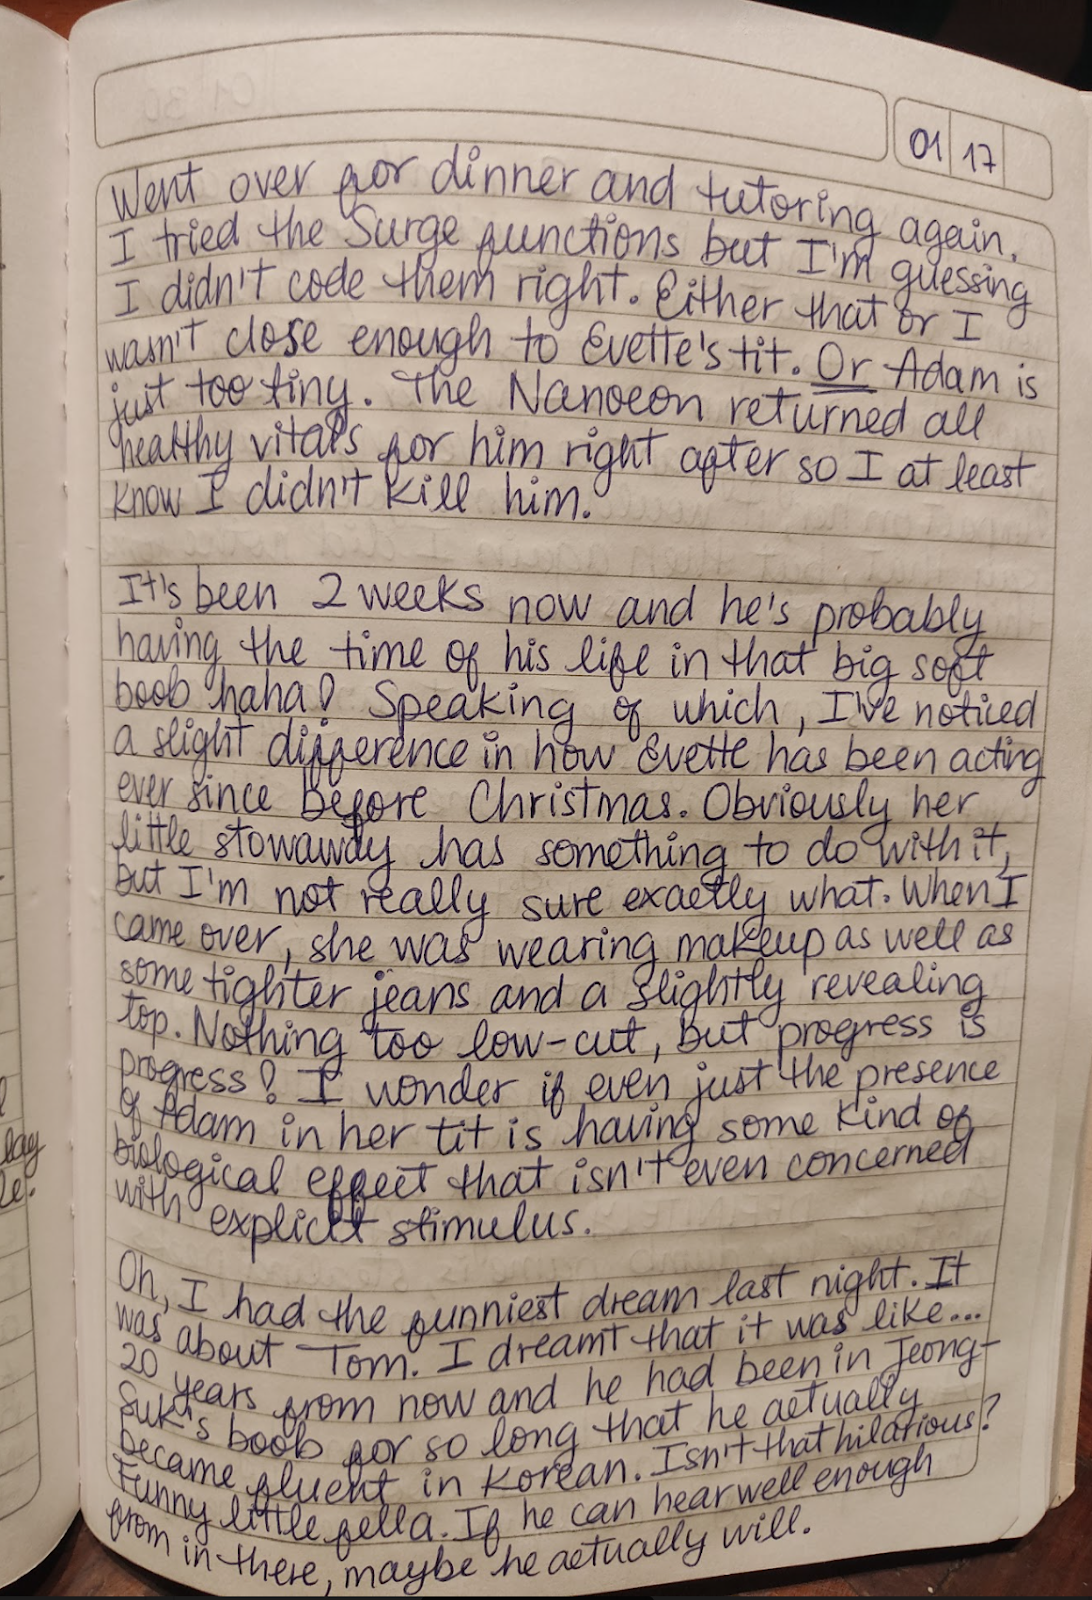 01 17
Went over for dinner and tutoring again.
I tried the Surge functions but I'm guessing
I didn't code them right. Either that or I
wasn't close enough to Evette's tit. Or Adam is
just too tiny. The Nanoeon returned all
healthy vitals for him right after so I at least
know I didn't kill him.
It's been 2 weeks now and he's probably
having the time of his life in that big soft
boob haha! Speaking of which, I've noticed
a slight difference in how Evette has been acting
ever since before Christmas. Obviously her
little stowaway has something to do with it,
but I'm not really sure exactly what. When I
came over, she was wearing makeup as well as
some tighter jeans and a slightly revealing
top. Nothing too low-cut, but progress is
progress! I wonder if even just the presence
of Adam in her tit is having some kind of
biological effect that isn't even concerned
with explicit stimulus.
Oh, I had the funniest dream last night. It
was about Tom. I dreamt that it was like...
20 years from now and he had been in Jeong-
Suk's boob for so long that he actually
became fluent in Korean. Isn't that hilarious?
Funny little fella. If he can hear well enough
from in there, maybe he actually will.
lay